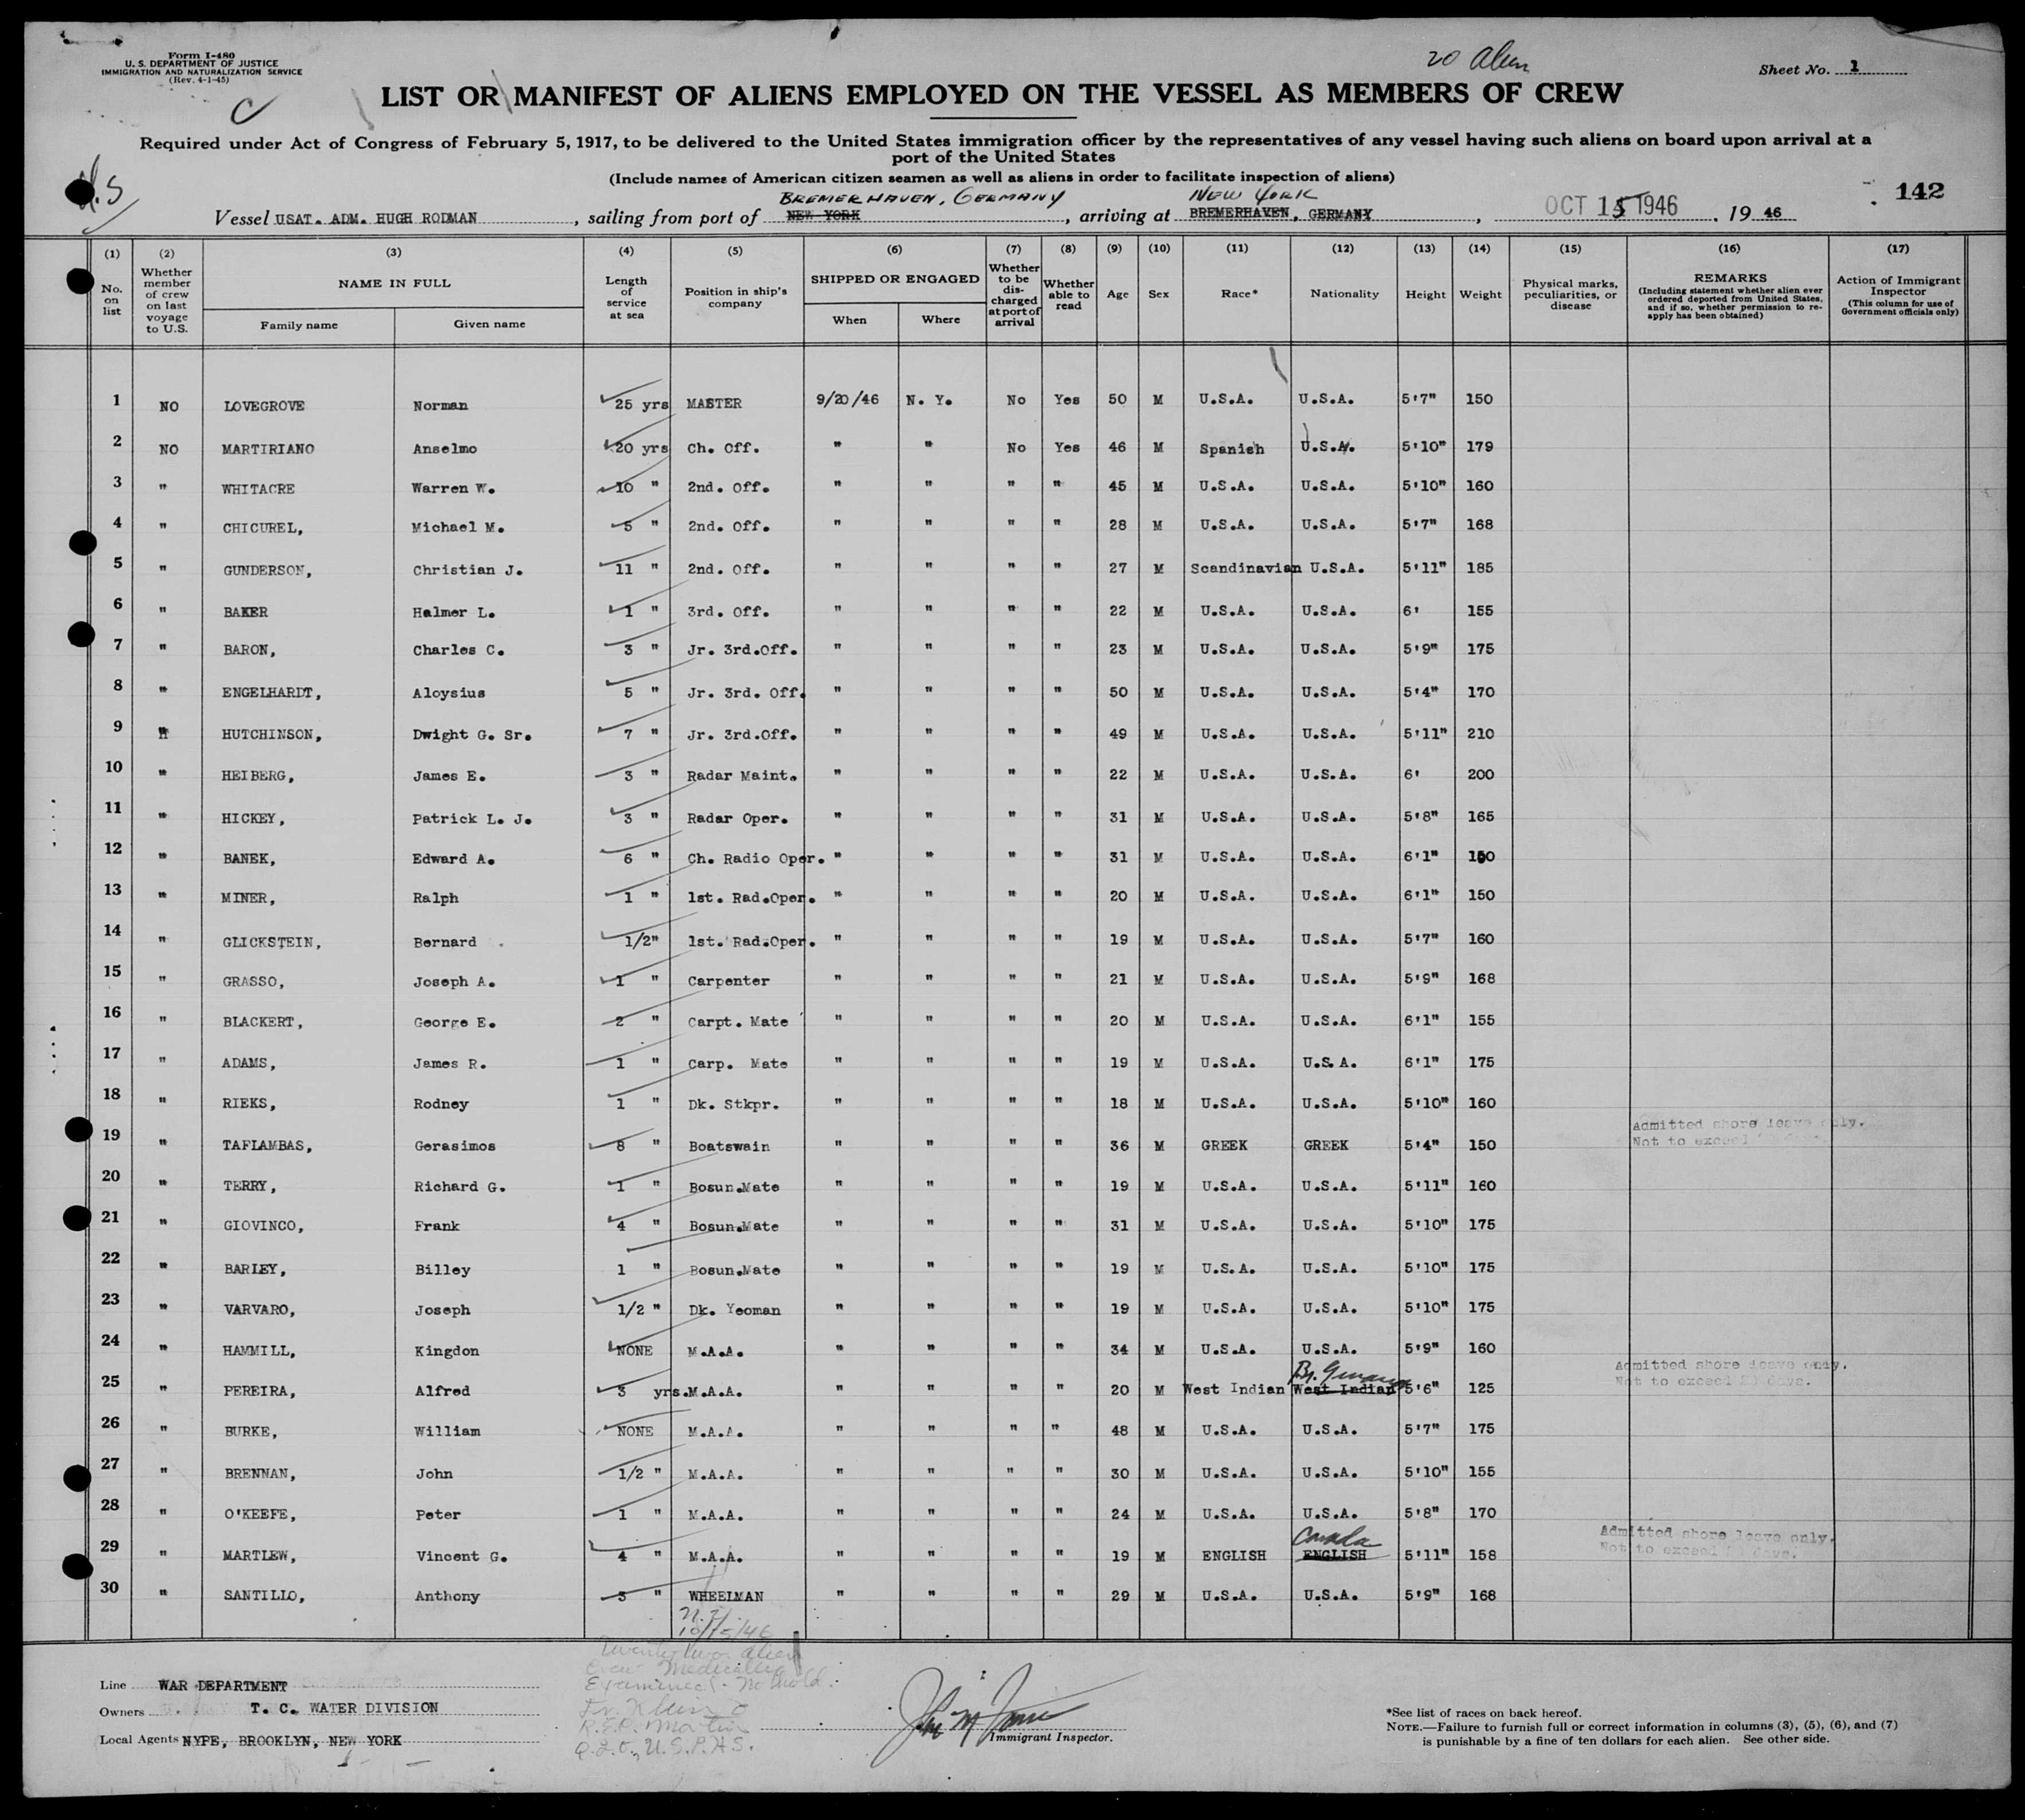 Form I-480
U. S. DEPARTMENT OF JUSTICE
IMMIGRATION AND NATURALIZATION SERVICE
(Rev. 4-1-45)
20 Alien
Sheet No. 1
C
LIST OR MANIFEST OF ALIENS EMPLOYED ON THE VESSEL AS MEMBERS OF CREW
Required under Act of Congress of February 5, 1917, to be delivered to the United States immigration officer by the representatives of any vessel having such aliens on board upon arrival at a
port of the United States
(Include names of American citizen seamen as well as aliens in order to facilitate inspection of aliens)
142
BREMERHAVEN, GERMANY NEW YORK
Vessel USAT. ADM. HUGH RODMAN, sailing from port of NEW YORK, arriving at BREMERHAVEN, GERMANY, OCT 15 1946, 19 46
(1) (2) (3) (4) (5) (6) (7) (8) (9) (10) (11) (12) (13) (14) (15) (16) (17)
No. on list
Whether member of crew on last voyage to U.S.
NAME IN FULL
Family name
Given name
Length of service at sea
Position in ship's company
SHIPPED OR ENGAGED
When
Where
Whether to be discharged at port of arrival
Whether able to read
Age
Sex
Race*
Nationality
Height
Weight
Physical marks, peculiarities, or disease
REMARKS
(Including statement whether alien ever ordered deported from United States, and if so, whether permission to reapply has been obtained)
Action of Immigrant Inspector
(This column for use of Government officials only)
1 NO LOVEGROVE Norman 25 yrs MASTER 9/20/46 N. Y. No Yes 50 M U.S.A. U.S.A. 5'7" 150
2 NO MARTIRIANO Anselmo 20 yrs Ch. Off. " " No Yes 46 M Spanish U.S.A. 5'10" 179
3 " WHITACRE Warren W. 10 " 2nd. Off. " " " " 45 M U.S.A. U.S.A. 5'10" 160
4 " CHICUREL, Michael M. 5 " 2nd. Off. " " " " 28 M U.S.A. U.S.A. 5'7" 168
5 " GUNDERSON, Christian J. 11 " 2nd. Off. " " " " 27 M Scandinavian U.S.A. 5'11" 185
6 " BAKER Halmer L. 1 " 3rd. Off. " " " " 22 M U.S.A. U.S.A. 6' 155
7 " BARON, Charles C. 3 " Jr. 3rd.Off. " " " " 23 M U.S.A. U.S.A. 5'9" 175
8 " ENGELHARDT, Aloysius 5 " Jr. 3rd. Off. " " " " 50 M U.S.A. U.S.A. 5'4" 170
9 " HUTCHINSON, Dwight G. Sr. 7 " Jr. 3rd.Off. " " " " 49 M U.S.A. U.S.A. 5'11" 210
10 " HEIBERG, James E. 3 " Radar Maint. " " " " 22 M U.S.A. U.S.A. 6' 200
11 " HICKEY, Patrick L. J. 3 " Radar Oper. " " " " 31 M U.S.A. U.S.A. 5'8" 165
12 " BANEK, Edward A. 6 " Ch. Radio Oper. " " " " 31 M U.S.A. U.S.A. 6'1" 150
13 " MINER, Ralph 1 " 1st. Rad.Oper. " " " " 20 M U.S.A. U.S.A. 6'1" 150
14 " GLICKSTEIN, Bernard 1/2" 1st. Rad.Oper. " " " " 19 M U.S.A. U.S.A. 5'7" 160
15 " GRASSO, Joseph A. 1 " Carpenter " " " " 21 M U.S.A. U.S.A. 5'9" 168
16 " BLACKERT, George E. 2 " Carpt. Mate " " " " 20 M U.S.A. U.S.A. 6'1" 155
17 " ADAMS, James R. 1 " Carp. Mate " " " " 19 M U.S.A. U.S.A. 6'1" 175
18 " RIEKS, Rodney 1 " Dk. Stkpr. " " " " 18 M U.S.A. U.S.A. 5'10" 160
19 " TAFLAMBAS, Gerasimos 8 " Boatswain " " " " 36 M GREEK GREEK 5'4" 150 Admitted shore leave only. Not to exceed
20 " TERRY, Richard G. 1 " Bosun.Mate " " " " 19 M U.S.A. U.S.A. 5'11" 160
21 " GIOVINCO, Frank 4 " Bosun.Mate " " " " 31 M U.S.A. U.S.A. 5'10" 175
22 " BARLEY, Billey 1 " Bosun.Mate " " " " 19 M U.S.A. U.S.A. 5'10" 175
23 " VARVARO, Joseph 1/2 " Dk. Yeoman " " " " 19 M U.S.A. U.S.A. 5'10" 175
24 " HAMMILL, Kingdon NONE M.A.A. " " " " 34 M U.S.A. U.S.A. 5'9" 160
25 " PEREIRA, Alfred 3 yrs. M.A.A. " " " " 20 M West Indian West Indian Br. Guiana 5'6" 125 Admitted shore leave only. Not to exceed days.
26 " BURKE, William NONE M.A.A. " " " " 48 M U.S.A. U.S.A. 5'7" 175
27 " BRENNAN, John 1/2 " M.A.A. " " " " 30 M U.S.A. U.S.A. 5'10" 155
28 " O'KEEFE, Peter 1 " M.A.A. " " " " 24 M U.S.A. U.S.A. 5'8" 170
29 " MARTLEW, Vincent G. 4 " M.A.A. " " " " 19 M ENGLISH ENGLISH Canada 5'11" 158 Admitted shore leave only. Not to exceed days.
30 " SANTILLO, Anthony 3 " WHEELMAN " " " " 29 M U.S.A. U.S.A. 5'9" 168
N.Y.
10/15/46
Twenty two alien
Crew Medically
Examined - No hold.
R.E.P. Martin
U.S.P.H.S.
Line WAR DEPARTMENT
Owners T. C. WATER DIVISION
Local Agents NYPE, BROOKLYN, NEW YORK
Immigrant Inspector.
*See list of races on back hereof.
NOTE.—Failure to furnish full or correct information in columns (3), (5), (6), and (7)
is punishable by a fine of ten dollars for each alien. See other side.